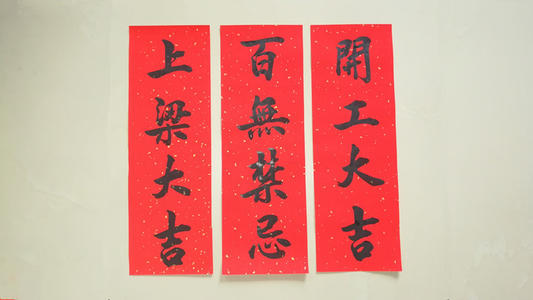 開工大吉
百無禁忌
上梁大吉